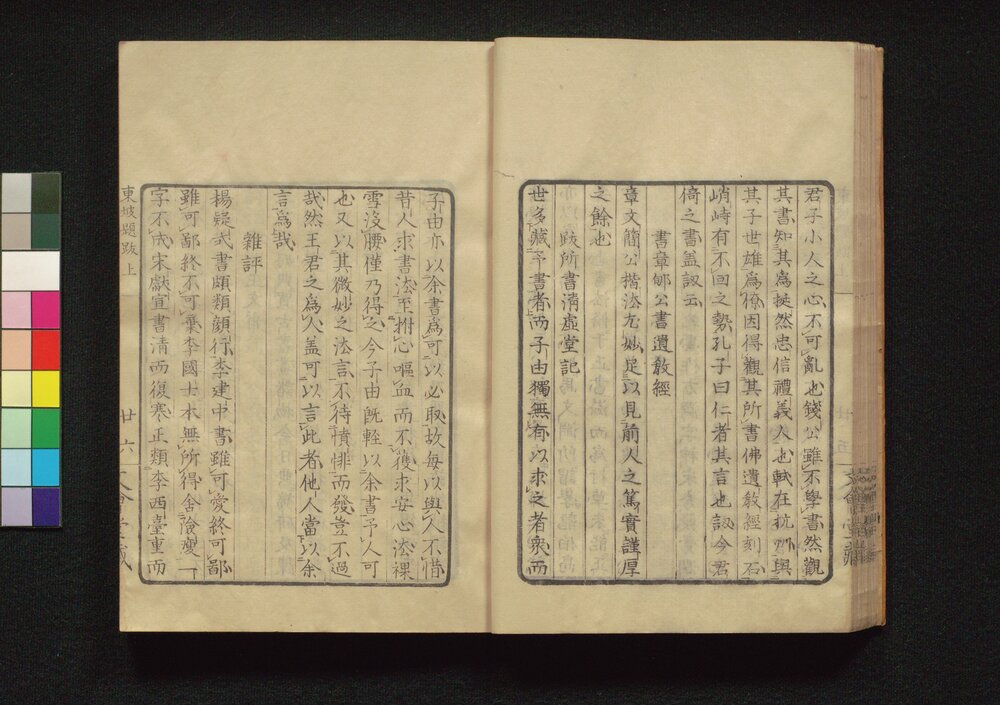 君子小人之心不可亂也錢公雖不學書然觀
其書知其為挺然忠信禮義人也軾在杭州與
其子世雄為僚因得觀其所書佛遺教經刻石
峭峙有不回之勢孔子曰仁者其言也訒今君
倚之書盖訒云
書章郇公書遺教經
章文簡公揩法尤妙足以見前人之篤實謹厚
之餘也
跋所書清虛堂記
世多藏予書者而子由獨無有以求之者衆而
子由亦以余書為可以必取故每以與人不惜
昔人求書法至拊心嘔血而不獲求安心法裸
雪沒腰僅乃得之今子由既輕以余書予人可
也又以其微妙之法言不待憤悱而發豈不過
哉然王君之為人盖可以言此者他人當以余
言為哉
雜評
楊凝式書頗類顔行李建中書雖可愛終可鄙
雖可鄙終不可棄李國士本無所得舍險瘦一
字不成宋獻宣書清而復寒正類李西臺重而
東坡題跋上
廿六